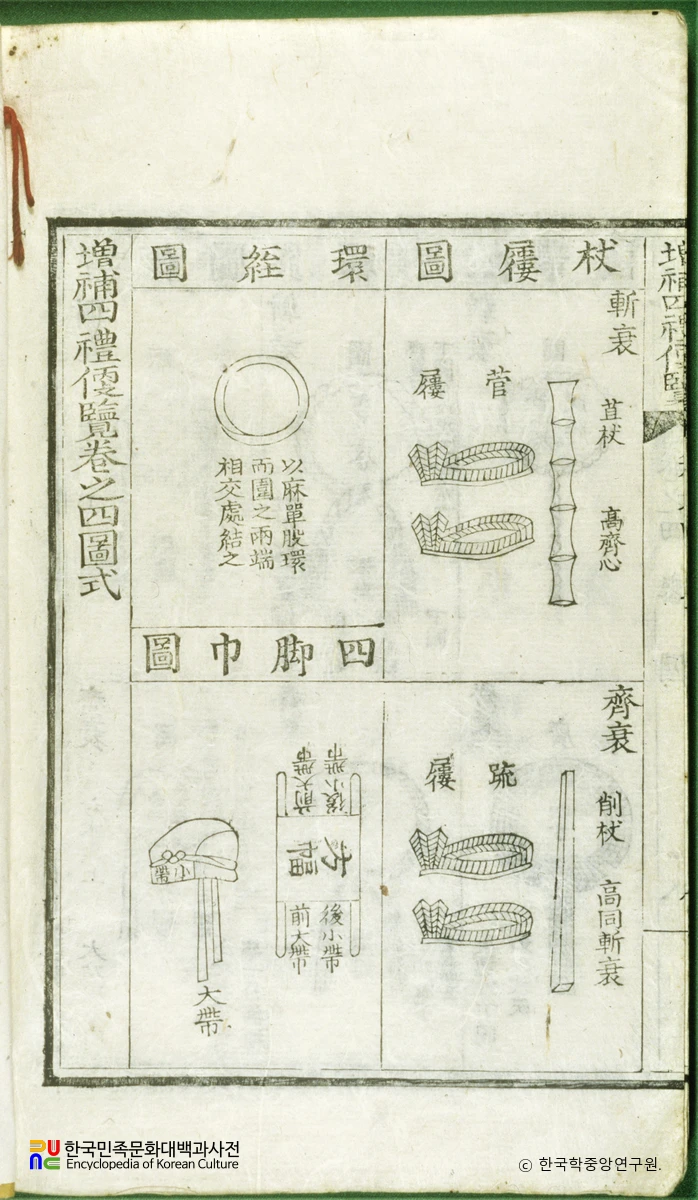 增補四禮便覽
杖屨圖
斬衰
苴杖
高齊心
菅
屨
齊衰
削杖
高同斬衰
疏
屨
環絰圖
以麻單股環
而圍之兩端
相交處結之
四脚巾圖
後小帶
前大帶
方幅
後小帶
前大帶
小帶
大帶
增補四禮便覽卷之四圖式
한국민족문화대백과사전
Encyclopedia of Korean Culture
© 한국학중앙연구원.